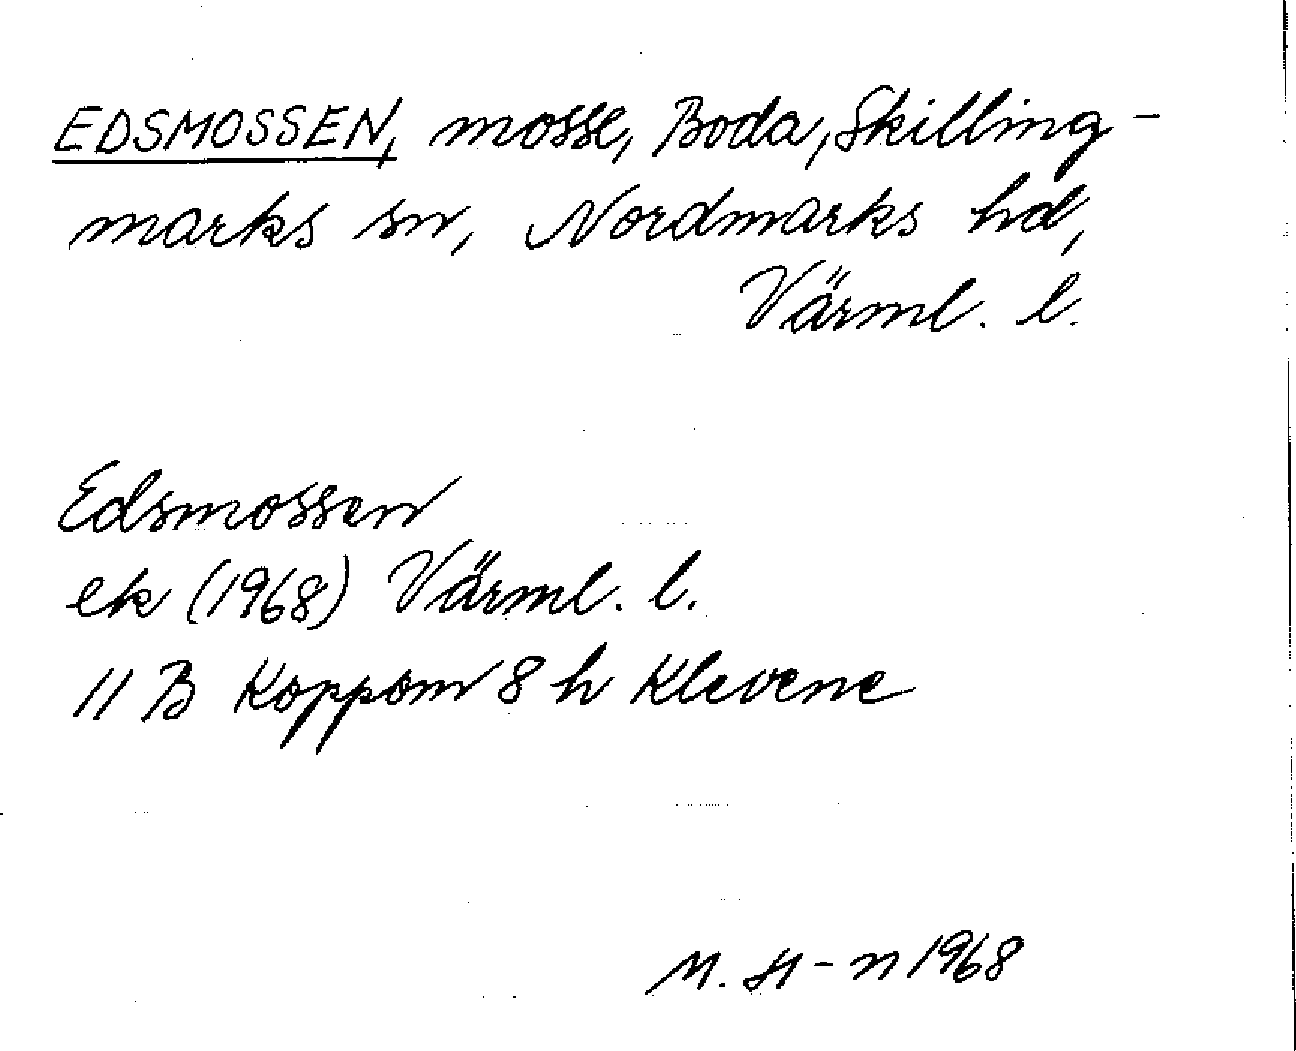 EDSMOSSEN, mosse, Boda, Skilling-
marks sn, Nordmarks hd,
Värml. l.
Edsmossen
ek (1968) Värml. l.
11 B Koppom 8 h Klevene
M. H-n 1968